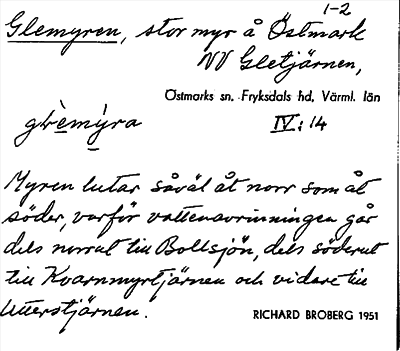 1-2
Glemyren, stor myr å Östmark
NV Gletjärnen,
Östmarks sn. Fryksdals hd, Värml. län
glèmýra IV:14
Myren lutar såväl åt norr som åt
söder, varför vattenavrinningen går
dels norrut till Bollsjön, dels söderut
till Kvarnmyrtjärnen och vidare till
Utterstjärnen.
RICHARD BROBERG 1951